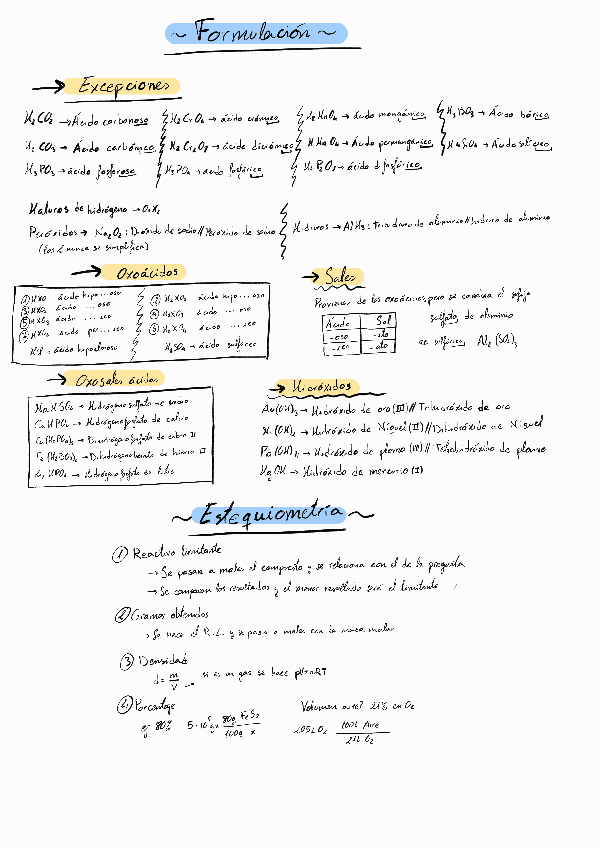 ~ Formulación ~
→ Excepciones
H₂CO₂ → Ácido carbonoso
H₂CrO₄ → ácido crómico
H₂MnO₄ → ácido mangánico
H₃BO₃ → Ácido bórico
H₂CO₃ → Ácido carbónico
H₂Cr₂O₇ → ácido dicrómico
HMnO₄ → Ácido permangánico
H₃PO₃ → ácido fosforoso
H₃PO₄ → ácido fosfórico
Haluros de hidrógeno →
Peróxidos → Na₂O₂ : Dióxido de sodio // Peróxido de sodio
(los 2 nunca se simplifica)
Hidruros → AlH₃ : Trihidruro de aluminio // hidruro de aluminio
→ Oxoácidos
① HXO ácido hipo...oso
③ HXO₂ ácido ... oso
⑤ HXO₃ ácido ... ico
⑦ HXO₄ ácido per...ico
② H₂XO₂ ácido hipo...oso
④ H₂XO₃ ácido ... oso
⑥ H₂XO₄ ácido ... ico
ácido hipocloroso
H₂SO₄ → ácido sulfúrico
→ Sales
Provienen de los oxoácidos, pero se cambia el sufijo
Ácido Sal
-oso -ito
-ico -ato
sulfato de aluminio
ac. sulfúrico Al₂(SO₄)₃
→ Oxosales ácidas
NaHSO₄ → Hidrógenosulfato de sodio
CaHPO₄ → Hidrógenofosfato de calcio
→ Dihidrógenofosfato de cobre II
Fe(H₂BO₃)₂ → Dihidrógenoborato de hierro II
Li₂HPO₄ → Hidrógenofosfato de litio
→ Hidróxidos
Au(OH)₃ → Hidróxido de oro (III) // Trihidróxido de oro
Ni(OH)₂ → Hidróxido de Níquel (II) // Dihidróxido de Níquel
Pb(OH)₄ → Hidróxido de plomo // Tetrahidróxido de plomo
HgOH → Hidróxido de mercurio (I)
~ Estequiometría ~
① Reactivo limitante
→ Se pasan a moles el compuesto y se relaciona con el de la pregunta
→ Se comparan los resultados y el menor resultado será el limitante
② Gramos obtenidos
→ Se hace el R.L. y se pasa a moles con la masa molar
③ Densidad
d = m/V si es un gas se hace pV=nRT
④ Porcentaje
ej 80% 80g FeS₂ / 100g x
Volumen aire? 21% en O₂
100L Aire / 21L O₂